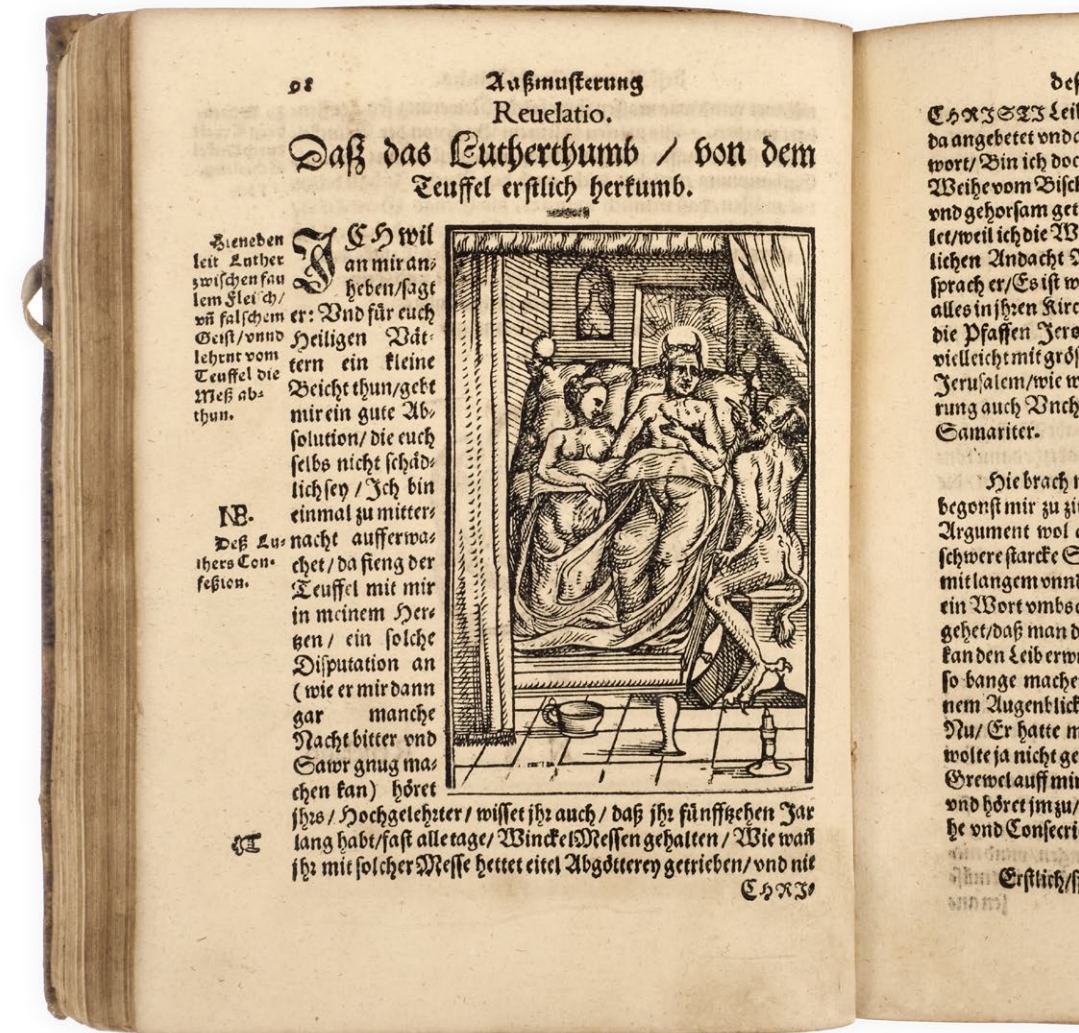 98
Außmusterung
Reuelatio.
Daß das Lutherthumb / von dem
Teuffel erstlich herkumb.
Hieneben
leit Luther
zwischen fau
lem Fleisch/
vñ falschem
Geist/vnnd
lehrnt vom
Teuffel die
Meß ab-
thun.
NB.
Deß Lu-
thers Con-
feßion.
ICH wil
an mir an-
heben/sagt
er: Vnd für euch
Heiligen Vät-
tern ein kleine
Beicht thun/gebt
mir ein gute Ab-
solution/ die euch
selbs nicht schäd-
lich sey / Ich bin
einmal zu mitter-
nacht aufferwa-
chet / da fieng der
Teuffel mit mir
in meinem Her-
tzen / ein solche
Disputation an
( wie er mir dann
gar manche
Nacht bitter vnd
Sawr gnug ma-
chen kan) höret
jhrs / Hochgelehrter / wisset jhr auch / daß jhr fünfftzehen Jar
lang habt/fast alle tage/ WinckelMessen gehalten / Wie wañ
jhr mit solcher Messe hettet eitel Abgötterey getrieben/ vnd nie
CHRI-
des
CHRISTI Leib
da angebetet vnd
wort/ Bin ich doc
Weihe vom Bisch
vnd gehorsam get
let/weil ich die W
lichen Andacht
sprach er/Es ist w
alles in jhren Kirc
die Pfaffen Jero
vielleicht mit grös
Jerusalem/wie w
rung auch Vnch
Samariter.
Hie brach
begonst mir zu
Argument wol
schwere starcke S
mit langem vnnd
ein Wort vmbs
gehet/daß man d
kan den Leib erw
so bange mache
nem Augenblick
Nu/ Er hatte m
wolte ja nicht ge
Grewel auff mir
vnd höret jm zu/
he vnd Consecri
Erstlich/s